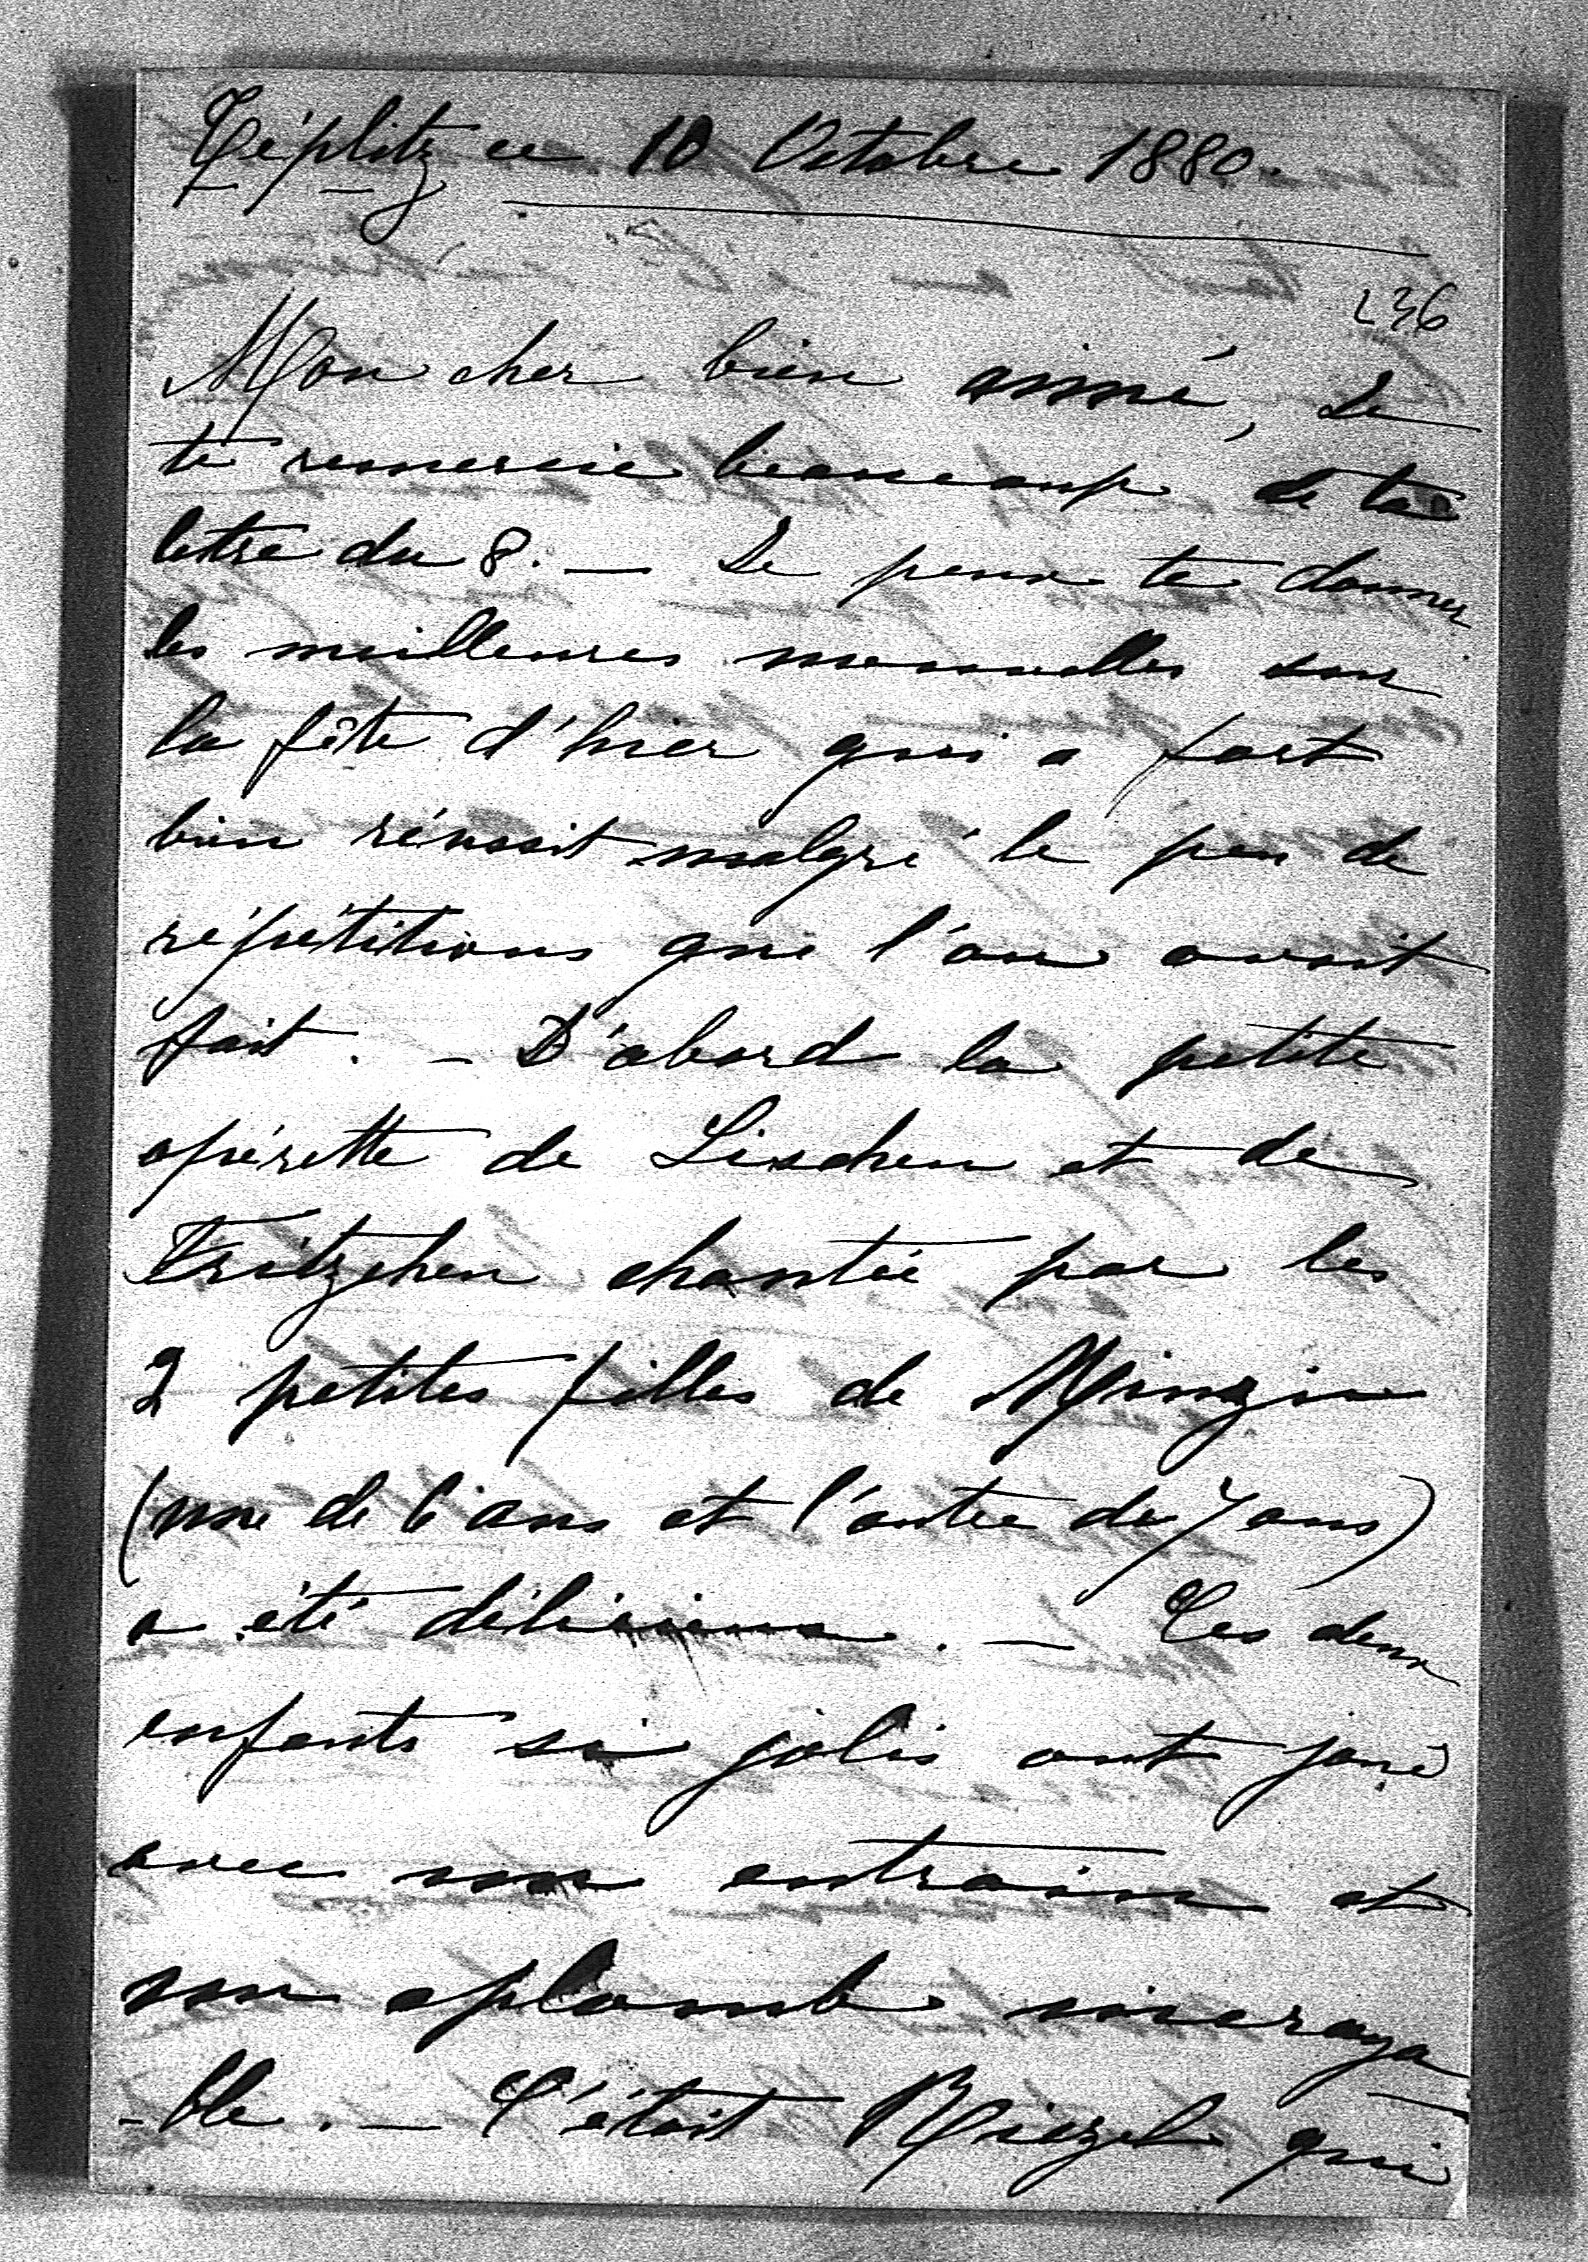 Téplitz ce 10 Octobre 1880.
236
Mon cher bien aimé, Je
te remercie beaucoup de ta
lettre du 8. — Je peux te donner
les meilleures nouvelles sur
la fête d'hier qui a fort
bien réussit malgré le peu de
répétitions que l'on avait
fait. — D'abord la petite
opérette de Lischen et de
Fritzchen chantée par les
2 petites filles de Minzin
(une de 6 ans et l'autre de 7 ans)
a été délicieux. — Ces deux
enfants si jolis ont joué
avec un entrain et
un aplomb incroya
-ble. — C'était qui